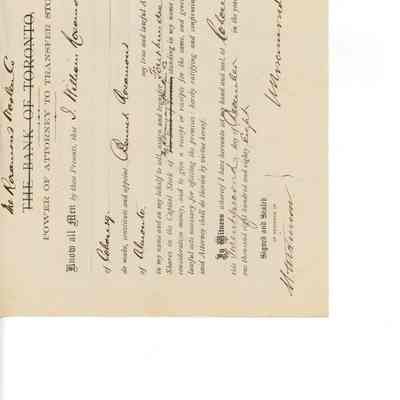 the Rosamond Woolen Co
THE BANK OF TORONTO,
POWER OF ATTORNEY TO TRANSFER STO
Know all Men by these Presents, that I William Rosamond
of Cobourg
do make, constitute and appoint Bennett Rosamond
of Almonte my true and lawful A
in my name and on my behalf to sell, assign and transfer
Shares in the Capital Stock of standing in my name
consideration money, and to give a receipt or receipts for the same, and gen
lawful acts necessary for effecting the premises : hereby ratifying and confirming
said Attorney shall do therein by virtue hereof.
In Witness whereof I have hereunto set my hand and seal, at Cobou
this Twenty second day of December in the year
one thousand eight hundred and eighty Eight
Signed and Sealed
IN PRESENCE OF